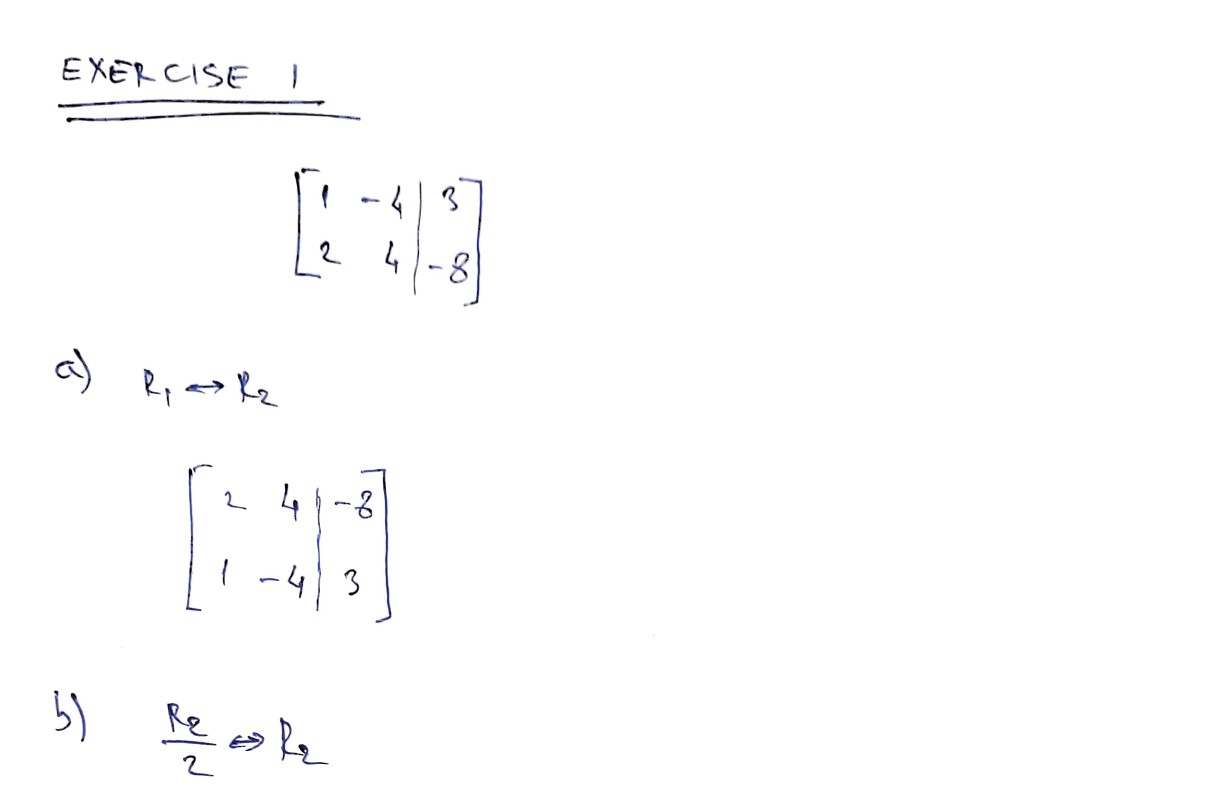 EXERCISE 1
[1 -4 | 3]
[2 4 | -8]
a) R₁ ↔ R₂
[2 4 | -8]
[1 -4 | 3]
b) R₂/2 ⇔ R₂